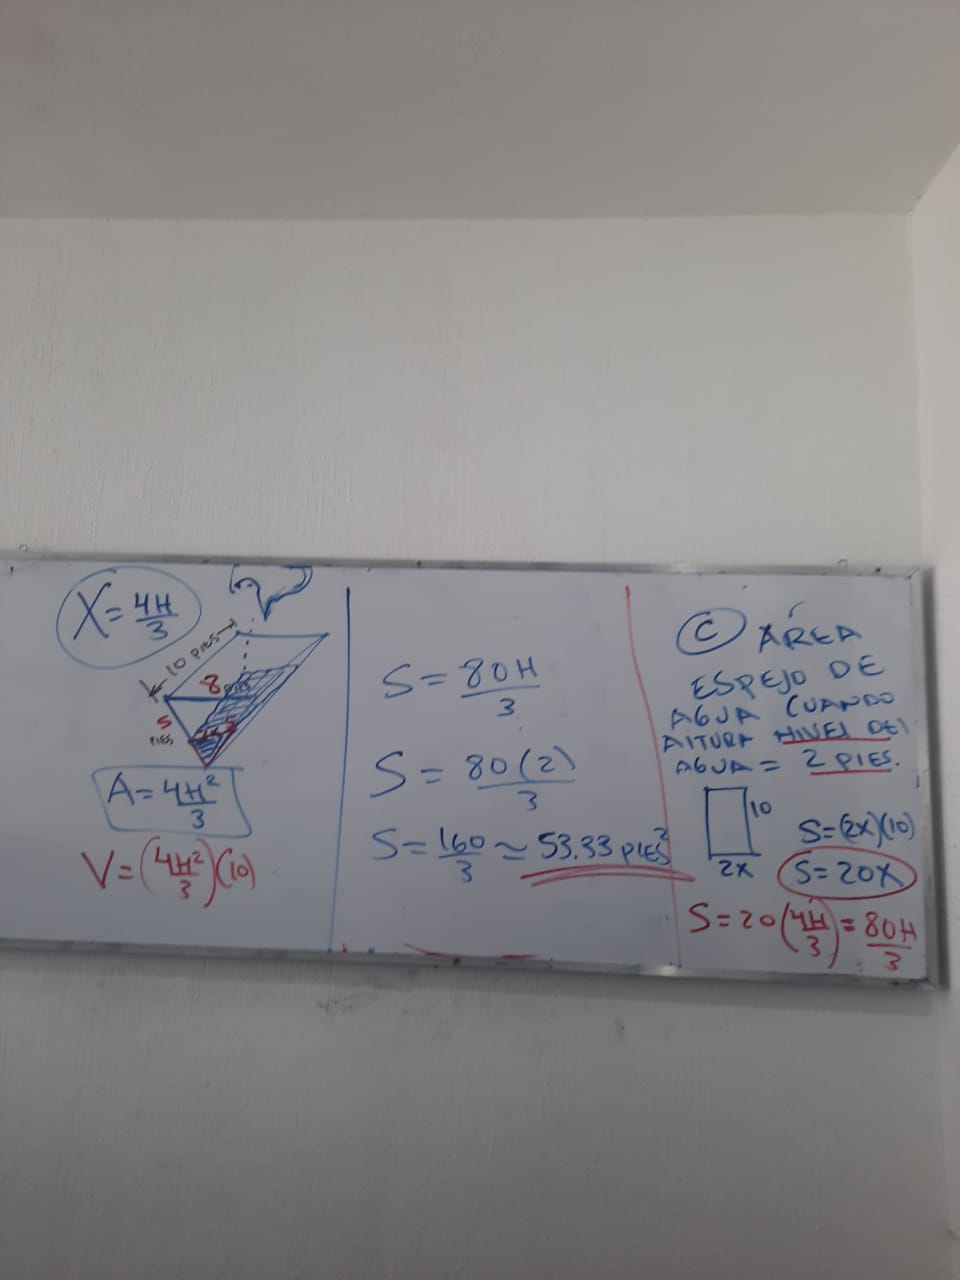 X = 4H/3
10 PIES
8
5
PIES
A = 4H²/3
V = (4H²/3)(10)
S = 80H/3
S = 80(2)/3
S = 160/3 ≈ 53.33 PIES²
C ÁREA
ESPEJO DE
AGUA CUANDO
ALTURA NIVEL DEL
AGUA = 2 PIES.
10
2X
S = (2X)(10)
S = 20X
S = 20(4H/3) = 80H/3